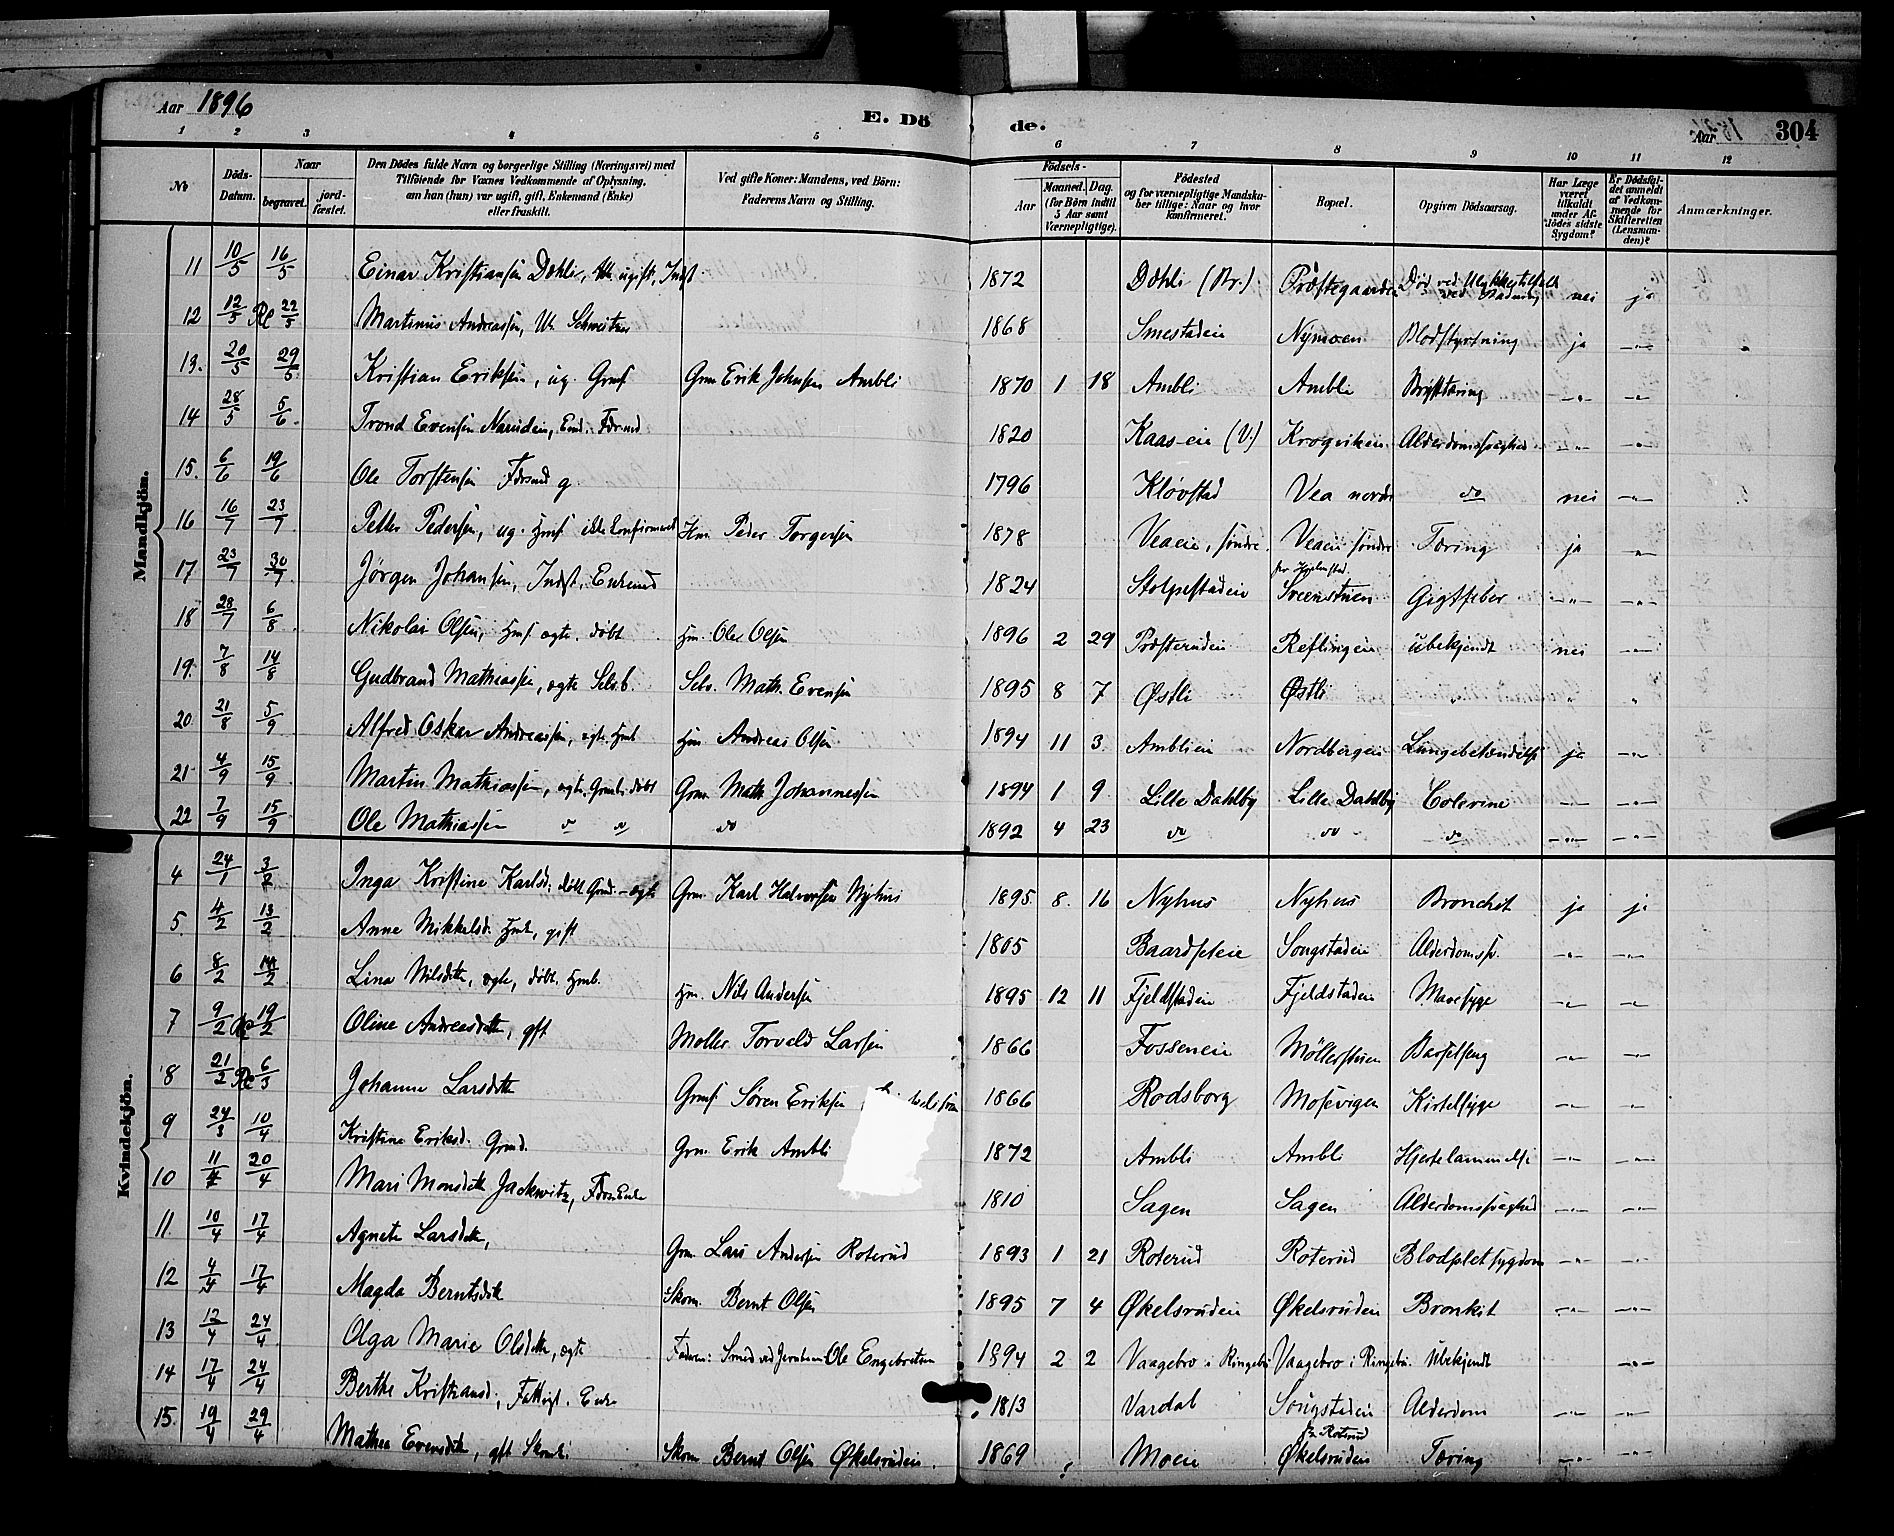 Aar 1896
E. Dö de.
Aar 304
1 2 3 4 5 6 7 8 9 10 11 12
No
Döds-Datum.
Naar begravet. jord-fæstet.
Den Dödes fulde Navn og borgerlige Stilling (Næringsvei) med
Tilföiende for Voxnes Vedkommende af Oplysning,
om han (hun) var ugift, gift, Enkemand (Enke)
eller fraskilt.
Ved gifte Koner: Mandens, ved Börn:
Faderens Navn og Stilling.
Födsels-
Aar Maaned. Dag.
(for Börn indtil 5 Aar samt Værnepligtige).
Födested
og for værnepligtige Mandska-
ber tillige: Naar og hvor
konfirmeret.
Bopæl.
Opgiven Dödsaarsag.
Har Læge været tilkaldt under Af-dödes sidste Sygdom?
Er Dödsfal-det anmeldt af Vedkom-mende for Skifteretten (Lensman-den)?
Anmærkninger.
Mandkjön.
11 10/5 16/5 Einar Kristiansen Dæhli, ugift, Indst. 1872 Dæhli (Br.) Præstegaarden Död ved Ulykkestilfælde ved nei ja
12 12/5 22/5 Martinus Andreassen, Schweitzer 1868 Smestadeie Nymoen Blodstyrtning ja -"-
13. 20/5 29/5 Kristian Eriksen, ug. Grmf Grm Erik Johnsen Ambli 1870 1 18 Ambli Ambli Brysttæring -"- -"-
14 28/5 5/6 Trond Evensen Narudeie, Enk. Forsmd 1820 Kaas-eie (V.) Krogviken Alderdomssvaghed -"- -"-
15. 6/6 19/6 Ole Torstensen Forsmd g. 1796 Kløvstad Vea nordre do nei -"-
16 16/7 23/7 Petter Pedersen, ug. Hmf ikke konfirmeret Hm. Peder Torgersen 1878 Veaeie, søndre Veaeie søndre Tæring ja -"-
17 23/7 30/7 Jørgen Johansen, Indst. Enkemd 1824 Stolpestadeie Sveenstuen Gigtfeber -"- -"-
18 28/7 6/8 Nikolai Olsen, Hmf. ægte. døbt Hm. Ole Olsen 1896 2 29 Præsterudeie Reflingeie ubekjendt nei -"-
19. 7/8 14/8 Gudbrand Mathiassen, ægte Selvb. Selv. Math. Evensen 1895 8 7 Østli Østli " " "
20. 21/8 5/9 Alfred Oskar Andreassen, ægte Hmb Hm Andreas Olsen 1894 11 3 Amblieie Nordbergeie Lungebetændelse ja -"-
21 4/9 15/9 Martin Mathiassen, ægte, Grmb. døbt Grm. Math Johannessen 1894 1 9 Lille Dahlby Lille Dahlby Colerine -"- -"-
22 7/9 15/9 Ole Mathiassen do do do 1892 4 23 do do do -"- -"-
Kvindekjön.
4 24/1 3/2 Inga Kristine Karlsd: døbt Grmd - ægte Grm. Karl Halvorsen Nyhus 1895. 8. 16 Nyhus Nyhus Bronchit ja ja
5. 4/2 13/2 Anne Mikkelsd. Hmk, gift 1805 Baardseteie Songstadeie Alderdomssv. -"- -"-
6 8/2 14/2 Lina Nilsdtr, ægte, døbt. Hmb. Hm. Nils Andersen 1895 12 11 Fjeldstadeie Fjeldstadeie Mavesyge -"- -"-
7 9/2 19/2 Oline Andreasdtr, gft Møller Torvald Larsen 1866 Fosseneie Møllerstuen Barselseng -"- -"-
8 21/2 6/3 Johanne Larsdtr Grmf Søren Eriksen 1866 Rodsborg Mosevigen Kirtelsyge -"- -"-
9 24/3 10/4 Kristine Eriksd. Grmd. Grm. Erik Ambli 1872 Ambli Ambli Hjertelammelse -"- -"-
10 11/4 20/4 Mari Monsdtr Jackwitz, Fors.Enke 1810 Sagen Sagen Alderdomssvaghed -"- -"-
11. 10/4 17/4 Agnete Larsdtr, Grm Lars Andersen Roterud 1893 1 21 Roterud Roterud Blodpletsygdom -"- -"-
12 4/4 17/4 Magda Berntsdtr Skom. Bernt Olsen 1895 7 4 Økelsrudeie Økelsrudeie Bronkit -"- -"-
13 12/4 24/4 Olga Marie Olsdtr, ægte Faderen: Smed ved Jernbanen Ole Engebretsen 1894 2 2 Vaagebro i Ringebu Vaagebro i Ringebu. Ubekjendt -"-
14 17/4 24/4 Berthe Kristiansd, Fattigl. Enke 1813 Vardal Songstadeie Alderdom -"- -"-
15. 19/4 29/4 Mathea Evensdtr, gft Skomk. Skom Bernt Olsen Økelsrudeie. 1869 Moeie fra Roterud Økelsrudeie Tæring -"- -"-